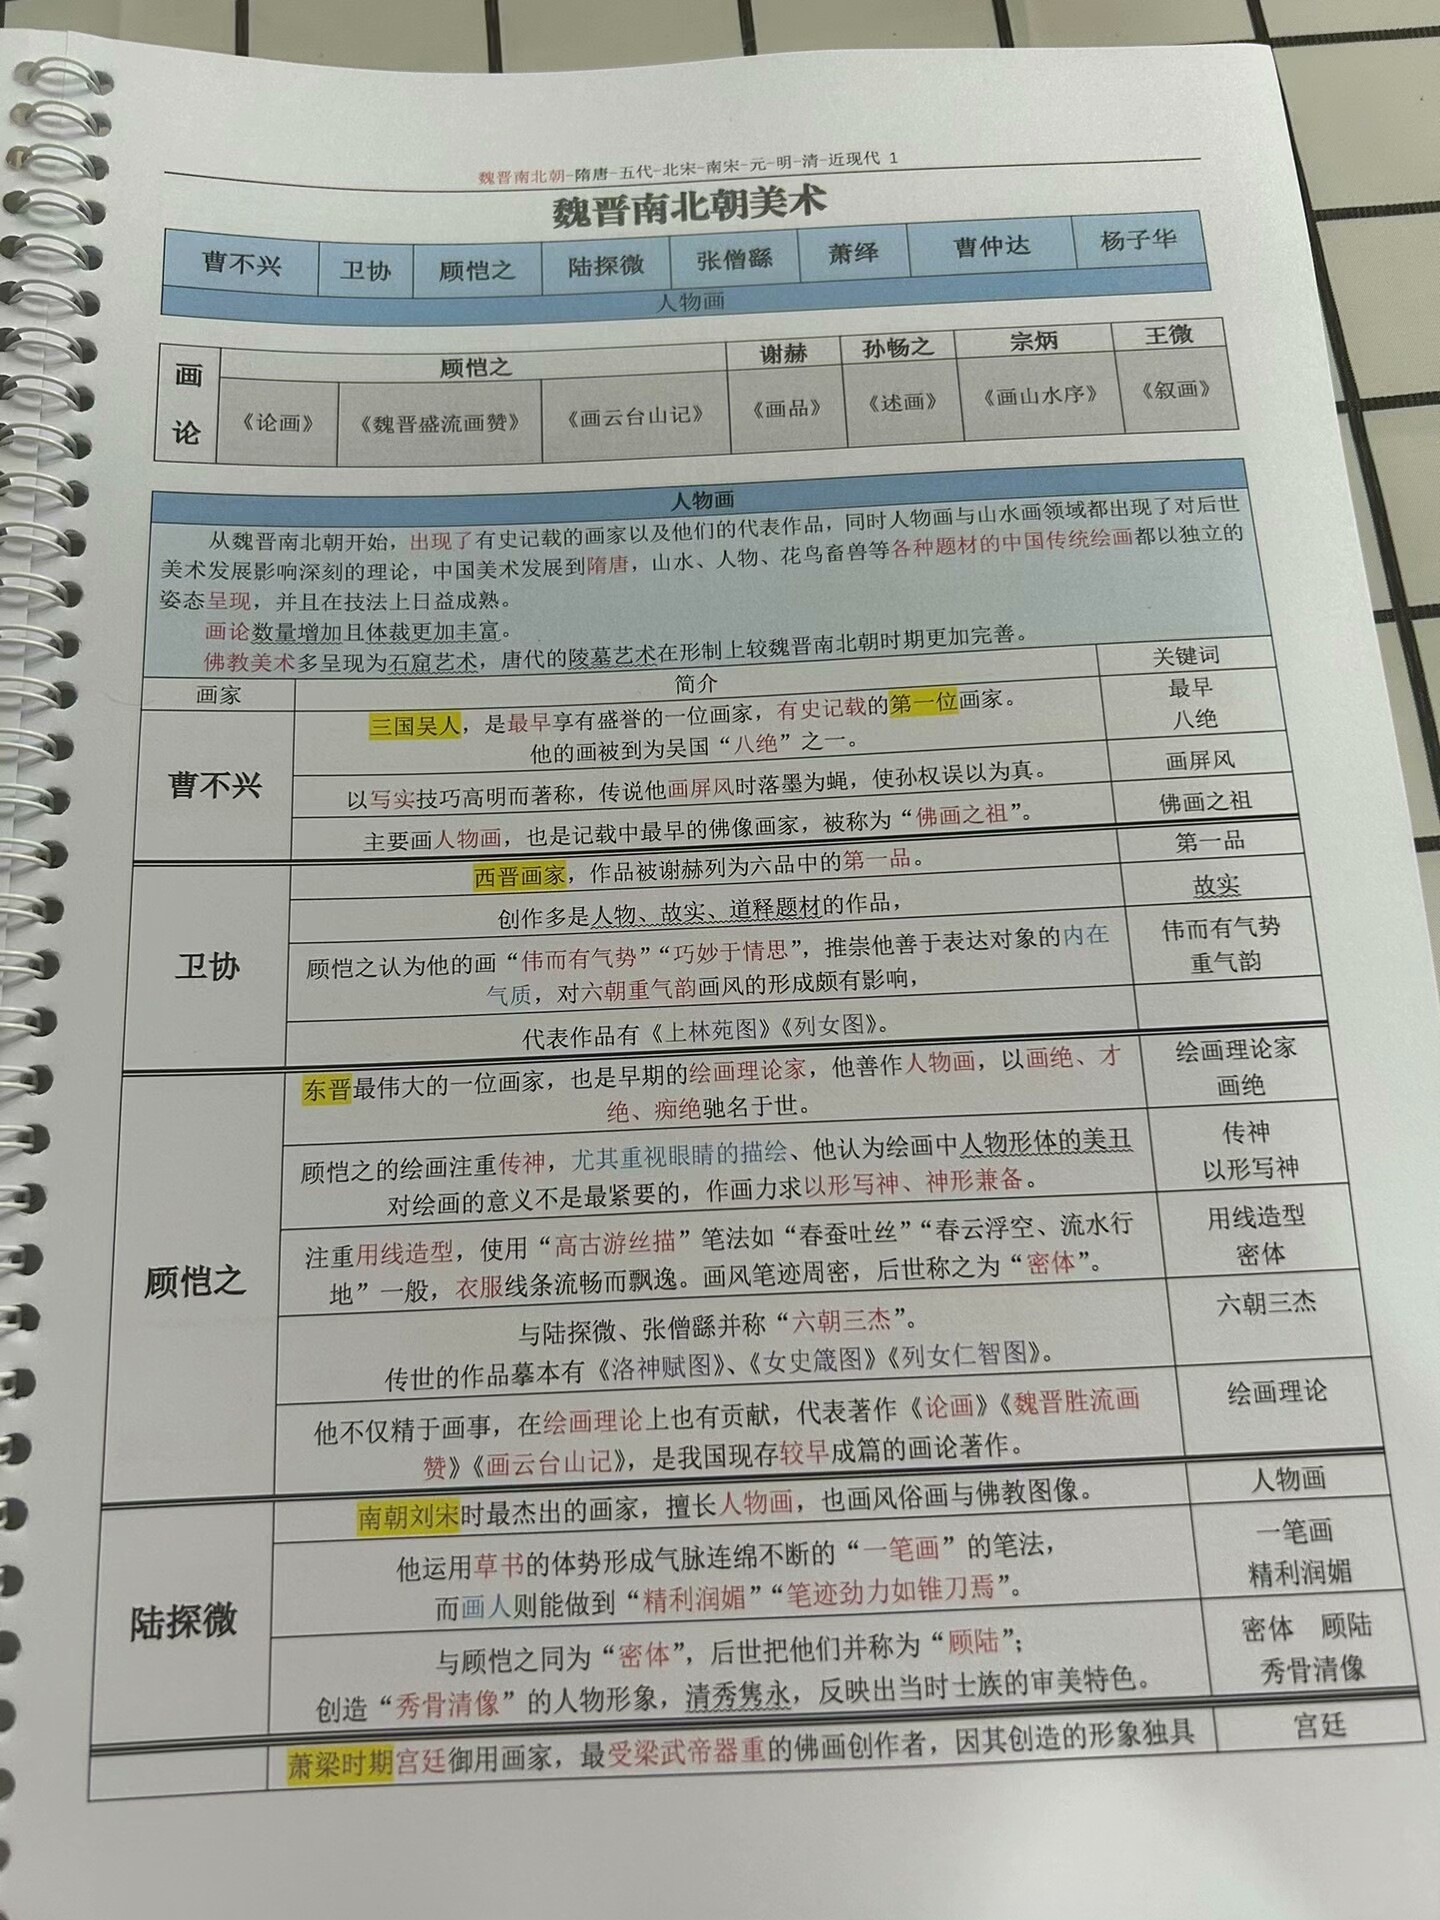 魏晋南北朝-隋唐-五代-北宋-南宋-元-明-清-近现代 1
魏晋南北朝美术
曹不兴 卫协 顾恺之 陆探微 张僧繇 萧绎 曹仲达 杨子华
人物画
画论 顾恺之 谢赫 孙畅之 宗炳 王微
《论画》 《魏晋盛流画赞》 《画云台山记》 《画品》 《述画》 《画山水序》 《叙画》
人物画
从魏晋南北朝开始，出现了有史记载的画家以及他们的代表作品，同时人物画与山水画领域都出现了对后世
美术发展影响深刻的理论，中国美术发展到隋唐，山水、人物、花鸟畜兽等各种题材的中国传统绘画都以独立的
姿态呈现，并且在技法上日益成熟。
画论数量增加且体裁更加丰富。
佛教美术多呈现为石窟艺术，唐代的陵墓艺术在形制上较魏晋南北朝时期更加完善。
画家 简介 关键词
曹不兴
三国吴人，是最早享有盛誉的一位画家，有史记载的第一位画家。 最早
他的画被到为吴国“八绝”之一。 八绝
以写实技巧高明而著称，传说他画屏风时落墨为蝇，使孙权误以为真。 画屏风
主要画人物画，也是记载中最早的佛像画家，被称为“佛画之祖”。 佛画之祖
卫协
西晋画家，作品被谢赫列为六品中的第一品。 第一品
创作多是人物、故实、道释题材的作品， 故实
顾恺之认为他的画“伟而有气势”“巧妙于情思”，推崇他善于表达对象的内在 伟而有气势
气质，对六朝重气韵画风的形成颇有影响， 重气韵
代表作品有《上林苑图》《列女图》。
顾恺之
东晋最伟大的一位画家，也是早期的绘画理论家，他善作人物画，以画绝、才 绘画理论家
绝、痴绝驰名于世。 画绝
顾恺之的绘画注重传神，尤其重视眼睛的描绘、他认为绘画中人物形体的美丑 传神
对绘画的意义不是最紧要的，作画力求以形写神、神形兼备。 以形写神
注重用线造型，使用“高古游丝描”笔法如“春蚕吐丝”“春云浮空、流水行 用线造型
地”一般，衣服线条流畅而飘逸。画风笔迹周密，后世称之为“密体”。 密体
与陆探微、张僧繇并称“六朝三杰”。 六朝三杰
传世的作品摹本有《洛神赋图》、《女史箴图》《列女仁智图》。
他不仅精于画事，在绘画理论上也有贡献，代表著作《论画》《魏晋胜流画 绘画理论
赞》《画云台山记》，是我国现存较早成篇的画论著作。
陆探微
南朝刘宋时最杰出的画家，擅长人物画，也画风俗画与佛教图像。 人物画
他运用草书的体势形成气脉连绵不断的“一笔画”的笔法， 一笔画
而画人则能做到“精利润媚”“笔迹劲力如锥刀焉”。 精利润媚
与顾恺之同为“密体”，后世把他们并称为“顾陆”； 密体 顾陆
创造“秀骨清像”的人物形象，清秀隽永，反映出当时士族的审美特色。 秀骨清像
萧梁时期宫廷御用画家，最受梁武帝器重的佛画创作者，因其创造的形象独具 宫廷